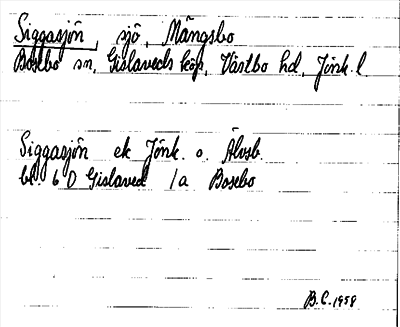 Siggasjön, sjö, Mångsbo
Bosebo sn, Gislaveds köp, Västbo hd, Jönk. l.
Siggasjön ek Jönk. o. Älvsb.
bl. 6 D Gislaved 1a Bosebo
B.C. 1958